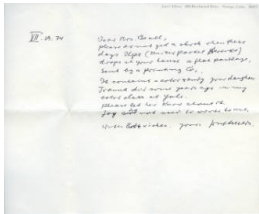 VII 29. 74
Dear Mrs. Ball,
please do not get a shock when these
days UPS (United Parcel Service)
drops at your house a flat package,
sent by a printing Co.
It contains a color study your daughter
Joanna did some years ago in my
color class at Yale.
Please let her know about it.
and not need to write to me.
With best wishes, yours